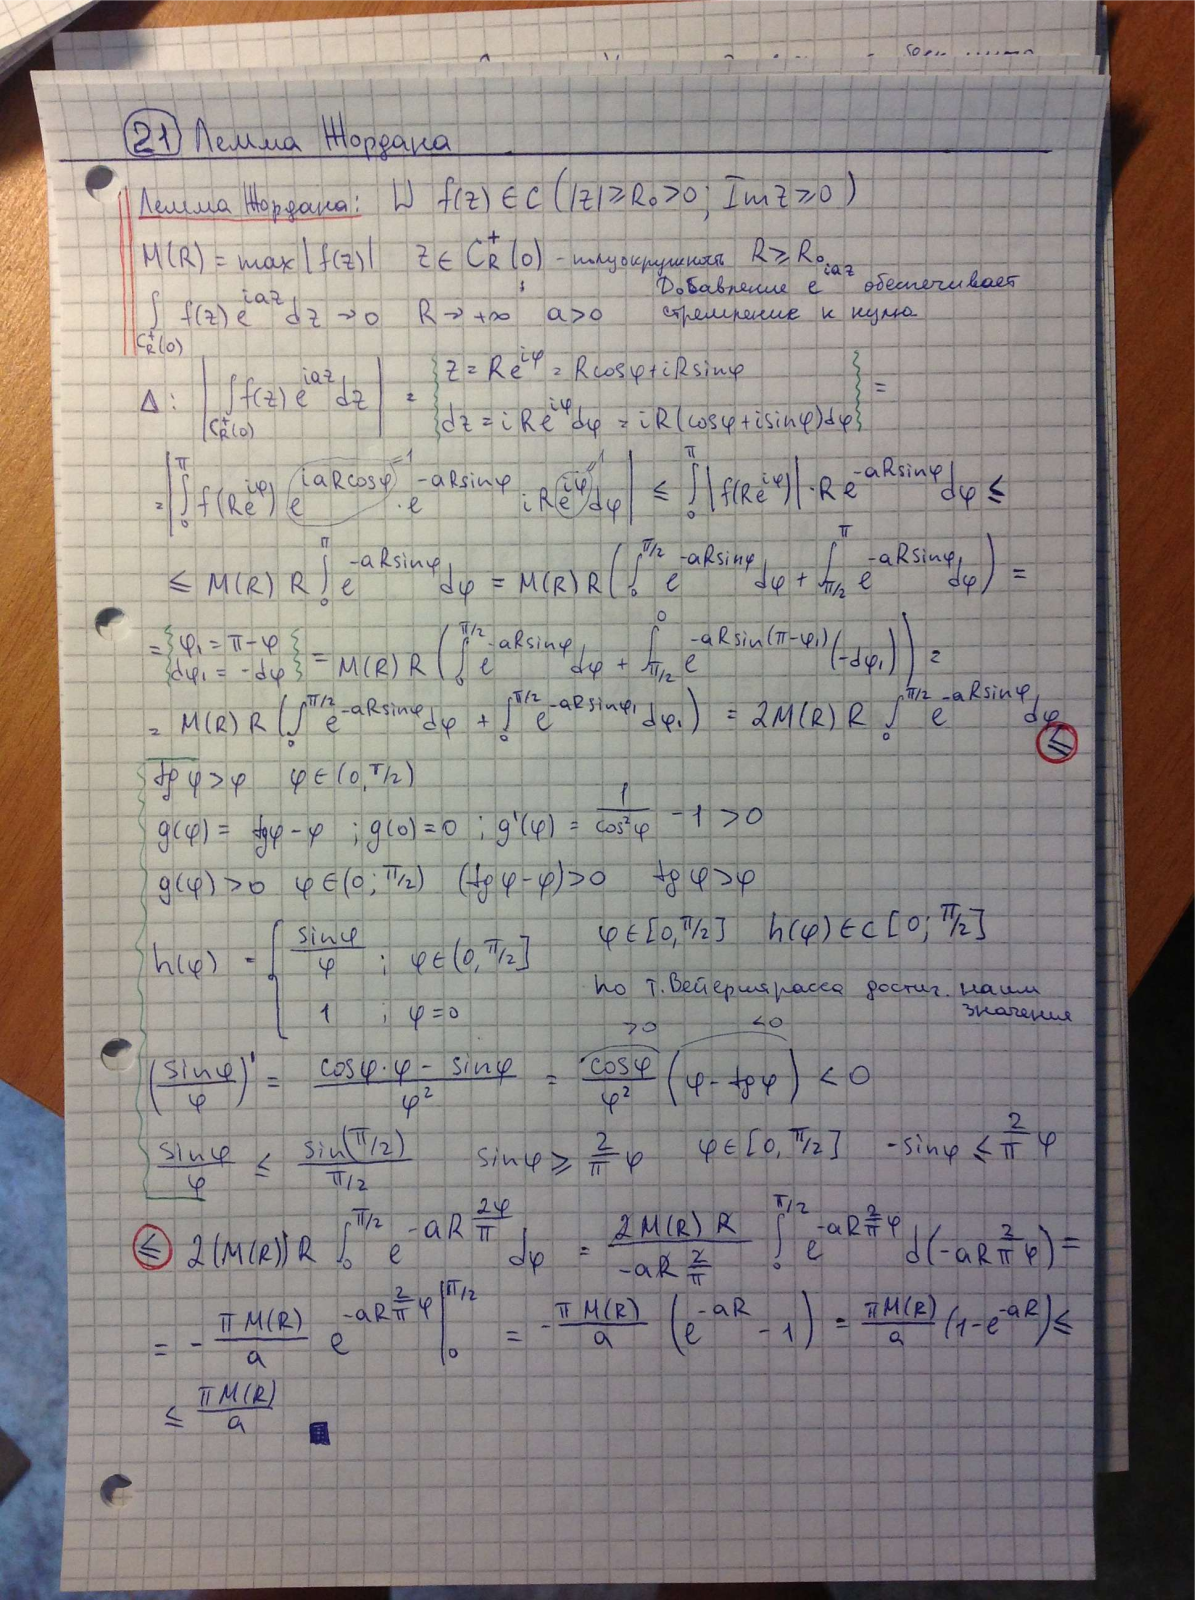 21 Лемма Жордана
Лемма Жордана: ⊔ f(z) ∈ C (|z| ≥ R₀ > 0; Im z ≥ 0)
M(R) = max |f(z)| z ∈ C_R^+(0) - полуокружность R ≥ R₀
∫_{C_R^+(0)} f(z) e^{iaz} dz → 0 R → +∞ a > 0
Добавление e^{iaz} обеспечивает
стремление к нулю
Δ: |∫_{C_R^+(0)} f(z) e^{iaz} dz| = { z = Re^{iφ} = R cosφ + iR sinφ
dz = iRe^{iφ} dφ = iR(cosφ + i sinφ)dφ } =
= |∫_0^π f(Re^{iφ}) e^{iaR cosφ} · e^{-aR sinφ} iRe^{iφ} dφ| ≤ ∫_0^π |f(Re^{iφ})| · R e^{-aR sinφ} dφ ≤
≤ M(R) R ∫_0^π e^{-aR sinφ} dφ = M(R) R (∫_0^{π/2} e^{-aR sinφ} dφ + ∫_{π/2}^π e^{-aR sinφ} dφ) =
= { φ₁ = π - φ
dφ₁ = -dφ } = M(R) R (∫_0^{π/2} e^{-aR sinφ} dφ + ∫_{π/2}^0 e^{-aR sin(π-φ₁)} (-dφ₁)) =
= M(R) R (∫_0^{π/2} e^{-aR sinφ} dφ + ∫_0^{π/2} e^{-aR sinφ₁} dφ₁) = 2M(R) R ∫_0^{π/2} e^{-aR sinφ} dφ ≤
tg φ > φ φ ∈ (0, π/2)
g(φ) = tgφ - φ ; g(0) = 0 ; g'(φ) = 1/cos²φ - 1 > 0
g(φ) > 0 φ ∈ (0; π/2) (tgφ - φ) > 0 tg φ > φ
h(φ) = { sinφ/φ ; φ ∈ (0, π/2]
1 ; φ = 0
φ ∈ [0, π/2] h(φ) ∈ C [0; π/2]
по т. Вейерштрасса достиг. наим
значения
(sinφ/φ)' = (cosφ·φ - sinφ)/φ² = cosφ/φ² (φ - tgφ) < 0
>0 <0
sinφ/φ ≤ sin(π/2)/(π/2) sinφ ≥ 2/π φ φ ∈ [0, π/2] -sinφ ≤ 2/π φ
≤ 2(M(R)) R ∫_0^{π/2} e^{-aR 2φ/π} dφ = 2M(R) R/(-aR 2/π) ∫_0^{π/2} e^{-aR 2/π φ} d(-aR 2/π φ) =
= - πM(R)/a e^{-aR 2/π φ} |_0^{π/2} = - πM(R)/a (e^{-aR} - 1) = πM(R)/a (1 - e^{-aR}) ≤
≤ πM(R)/a ■